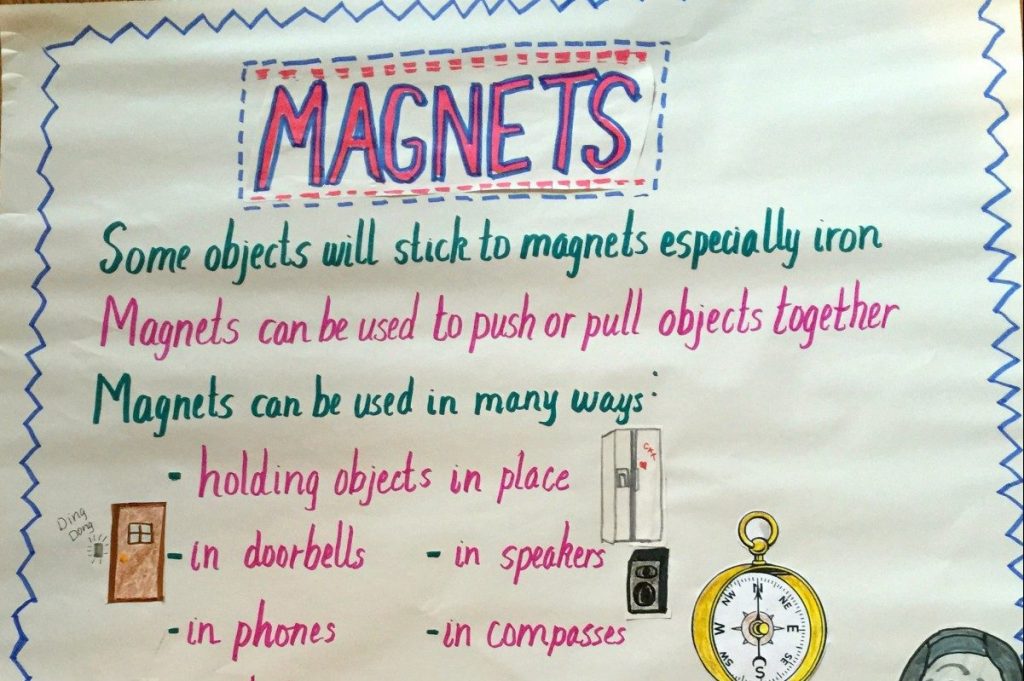 MAGNETS
Some objects will stick to magnets especially iron
Magnets can be used to push or pull objects together
Magnets can be used in many ways:
- holding objects in place
Ding
Dong
- in doorbells - in speakers
- in phones - in compasses
N
NE
E
SE
S
SW
W
NW